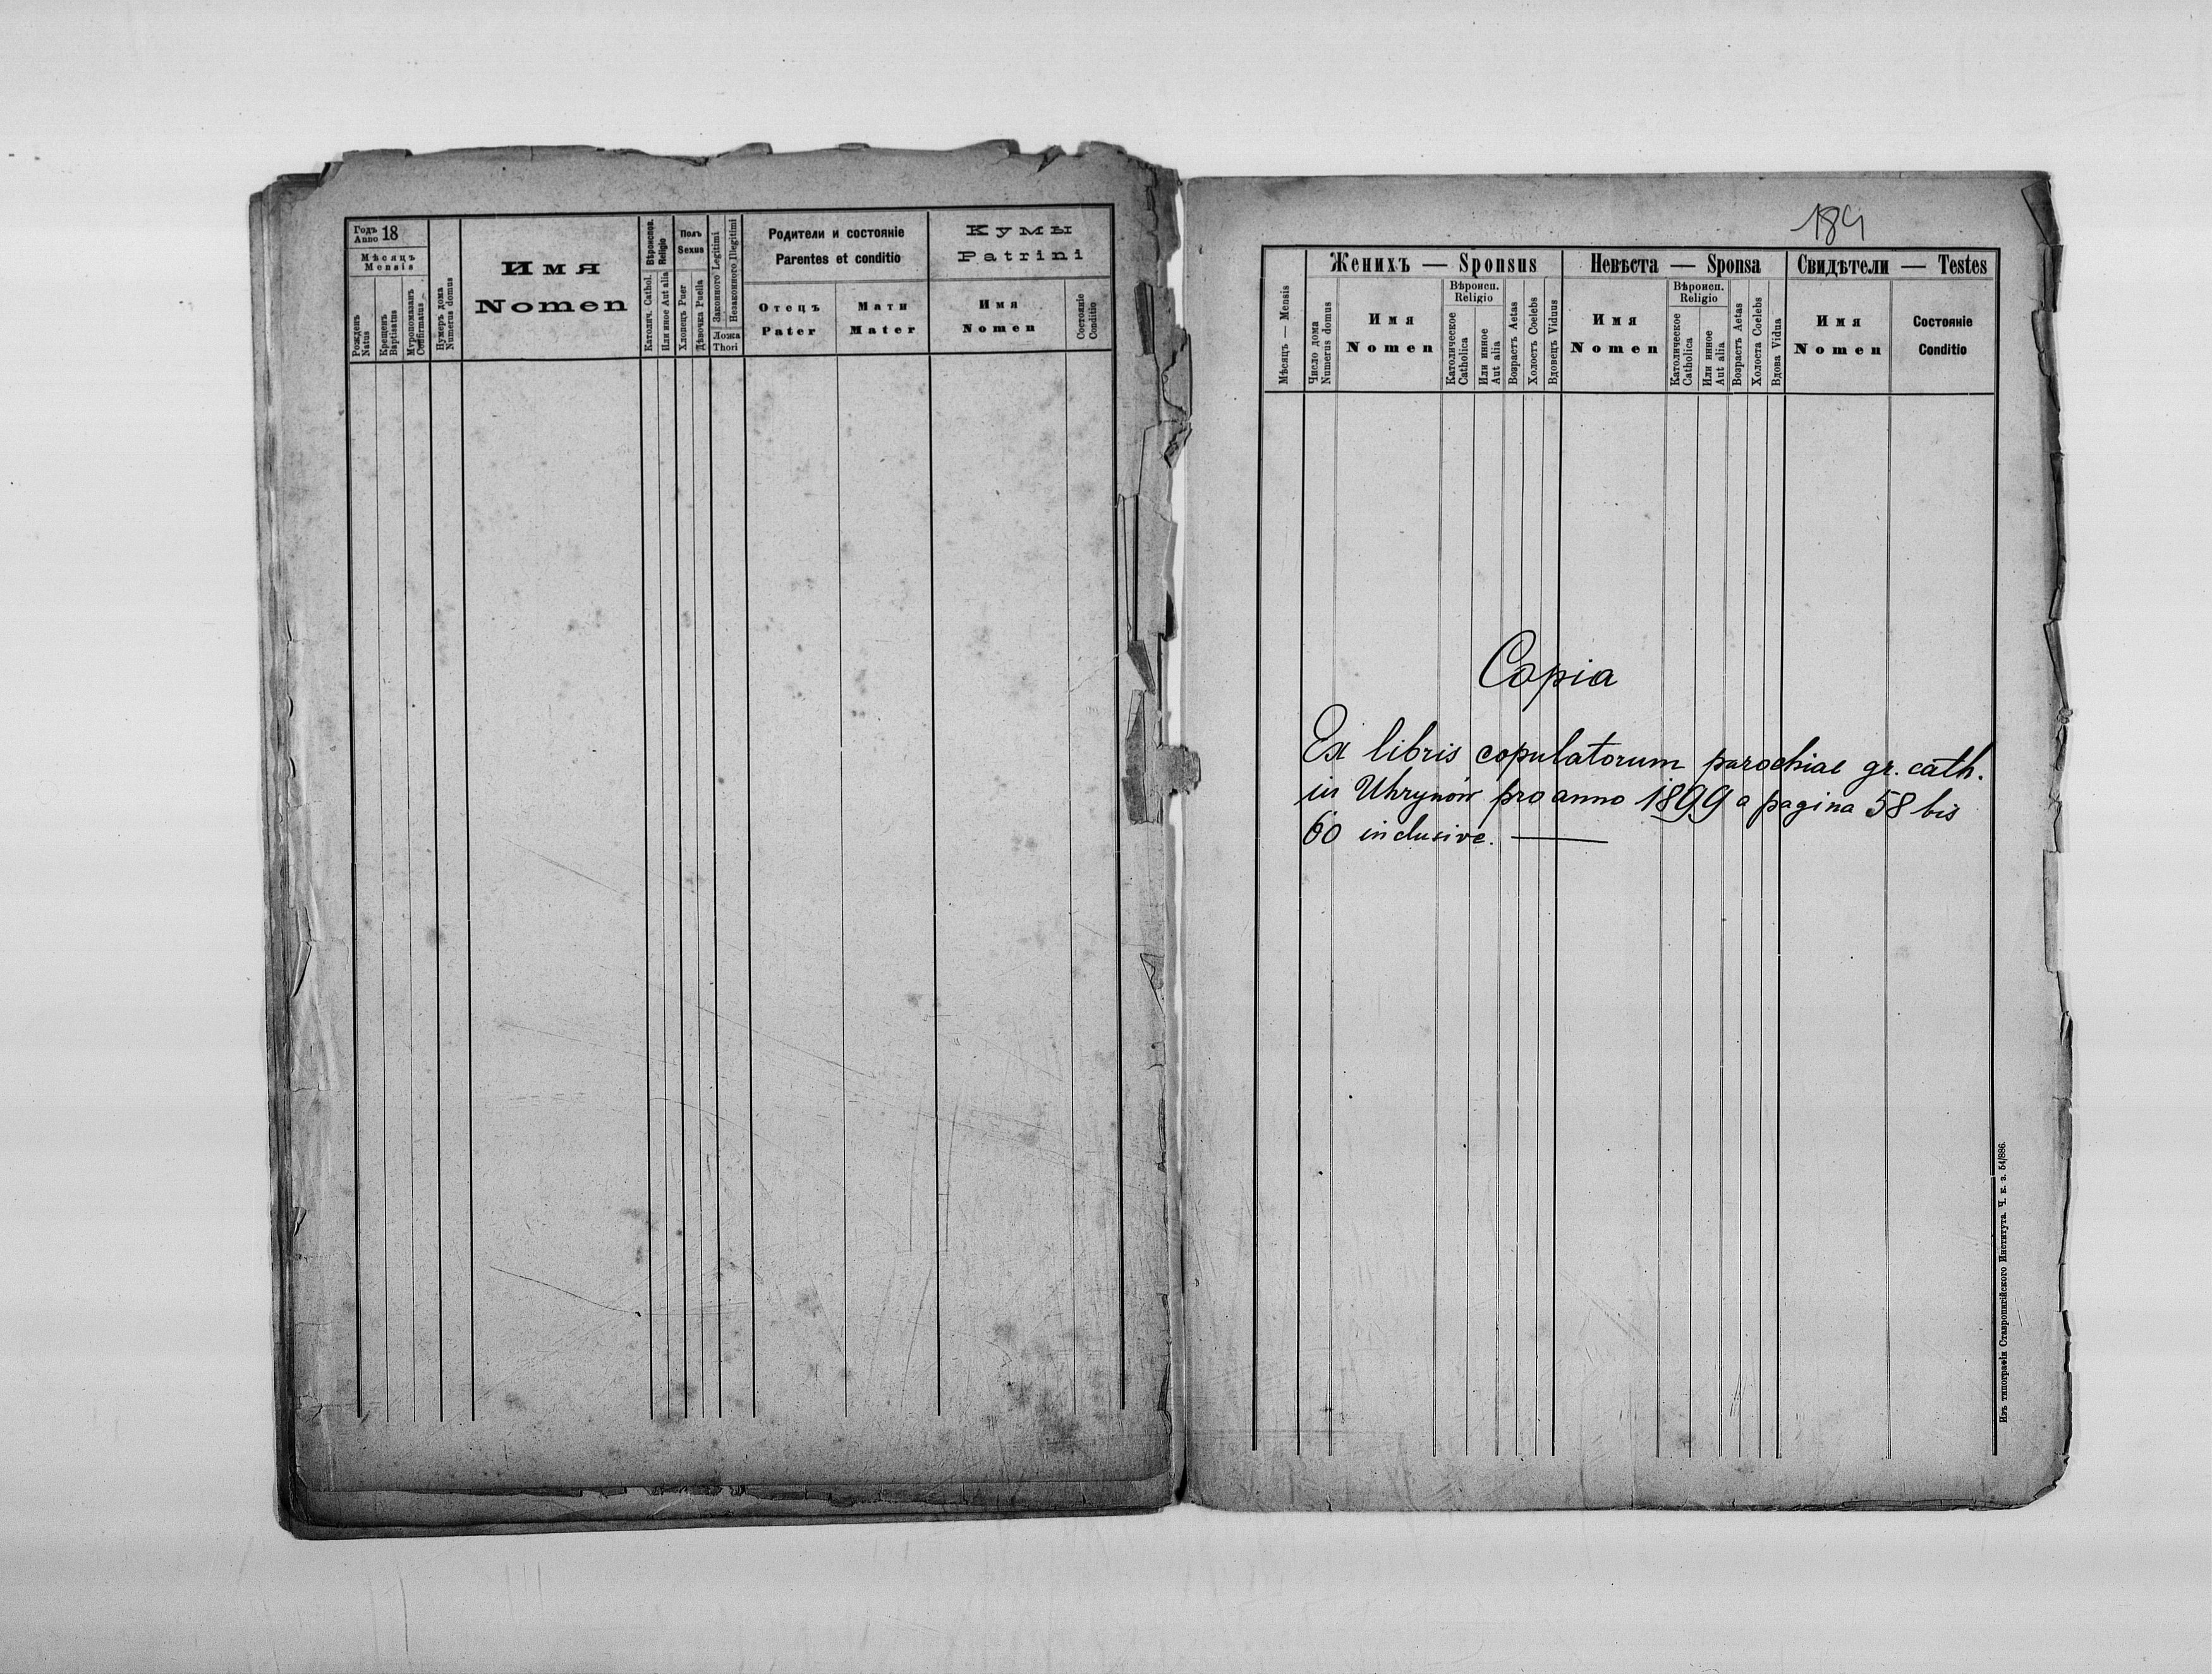 Годъ
Anno 18
Мѣсяцъ
Mensis
Рожденъ
Natus
Крещенъ
Baptisatus
Мνропомазанъ
Confirmatus
Нумеръ дома
Numerus domus
Имя
Nomen
Вѣроиспов.
Religio
Католич. Cathol.
Или иное Aut alia
Полъ
Sexus
Хлопецъ Puer
Дѣвочка Puella
Законного Legitimi
Незаконного Illegitimi
Ложа
Thori
Родители и состоянiе
Parentes et conditio
Отецъ
Pater
Мати
Mater
Кумы
Patrini
Имя
Nomen
Состоянiе
Conditio
184
Мѣсяцъ — Mensis
Женихъ — Sponsus
Число дома
Numerus domus
Имя
Nomen
Вѣроисп.
Religio
Католическое
Catholica
Или инное
Aut alia
Возрастъ Aetas
Холостъ Coelebs
Вдовецъ Viduus
Невѣста — Sponsa
Имя
Nomen
Вѣроисп.
Religio
Католическое
Catholica
Или инное
Aut alia
Возрастъ Aetas
Холоста Coelebs
Вдова Vidua
Свидѣтели — Testes
Имя
Nomen
Состоянiе
Conditio
Copia
Ex libris copulatorum parochiae gr. cath.
in Uhrynów pro anno 1899 a pagina 58 bis
60 inclusive. —
Изъ типографiи Ставропигiйского Института. Ч. к. з. 54/886.